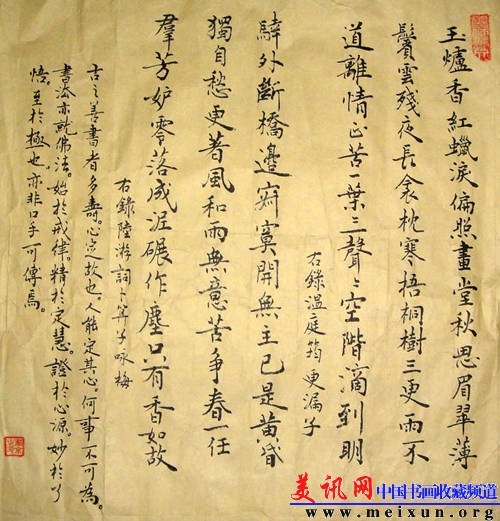 玉爐香紅蠟淚偏照畫堂秋思眉翠薄
鬢雲殘夜長衾枕寒梧桐樹三更雨不
道離情正苦一葉〻聲〻空階滴到明
右錄溫庭筠更漏子
驛外斷橋邊寂寞開無主已是黃昏
獨自愁更著風和雨無意苦爭春一任
羣芳妒零落成泥碾作塵只有香如故
右錄陸游詞卜算子詠梅
古之善書者多壽。心定故也。人能定其心。何事不可為。
書法亦就佛法。始於戒律。精於定慧。證於心源。妙於了
悟。至於極也。亦非口手可傳焉。
美讯网 中国书画收藏频道
www.meixun.org